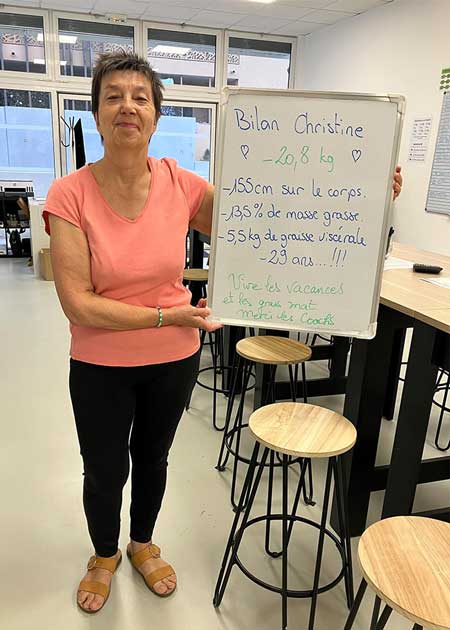 Bilan Christine
-20,8 kg
-155cm sur le corps.
-13,5% de masse grasse.
-5,5kg de graisse viscérale
-29 ans...!!!
Vive les vacances
et les gains mat
Merci les Coachs